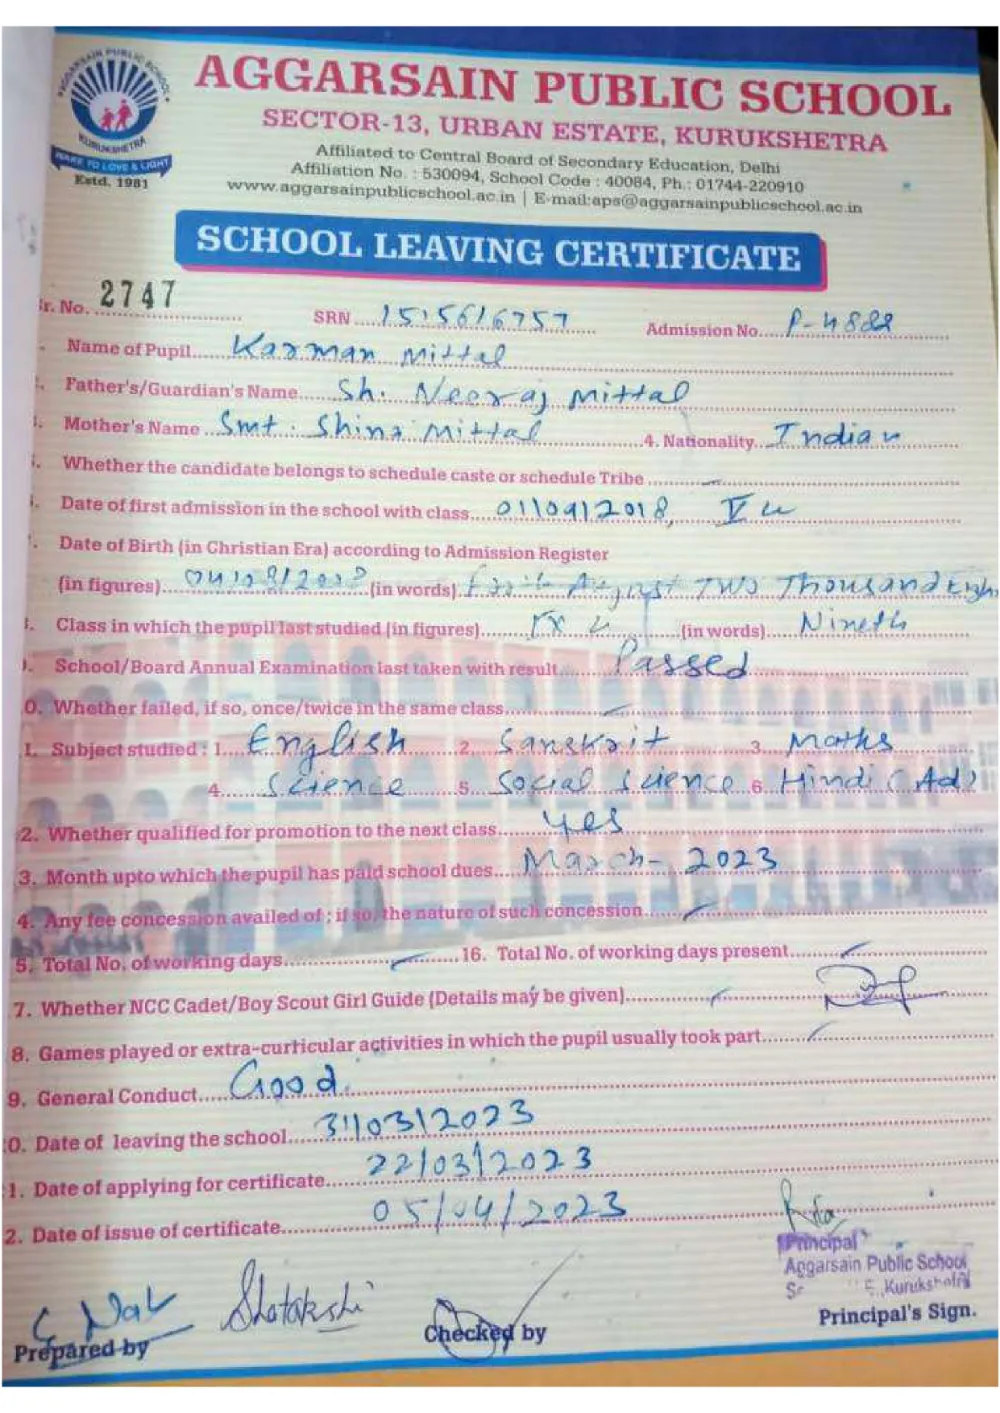 AGGARSAIN PUBLIC SCHOOL
KURUKSHETRA
Estd. 1981
AGGARSAIN PUBLIC SCHOOL
SECTOR-13, URBAN ESTATE, KURUKSHETRA
Affiliated to Central Board of Secondary Education, Delhi
Affiliation No. : 530094, School Code : 40084, Ph.: 01744-220910
www.aggarsainpublicschool.ac.in | E-mail:aps@aggarsainpublicschool.ac.in
SCHOOL LEAVING CERTIFICATE
r. No. 2747 SRN 1515616757 Admission No. P-4888
Name of Pupil Karman Mittal
Father's/Guardian's Name Sh. Neeraj Mittal
Mother's Name Smt. Shina Mittal 4. Nationality Indian
Whether the candidate belongs to schedule caste or schedule Tribe -
Date of first admission in the school with class 01/04/2018, V
Date of Birth (in Christian Era) according to Admission Register
(in figures) 04/08/2008 (in words) August Two Thousand Eight
Class in which the pupil last studied (in figures) IX (in words) Nineth
School/Board Annual Examination last taken with result Passed
0. Whether failed, if so, once/twice in the same class -
1. Subject studied : 1. English 2. Sanskrit 3. Maths
4. Science 5. Social Science 6. Hindi (Ad)
2. Whether qualified for promotion to the next class Yes
3. Month upto which the pupil has paid school dues March - 2023
4. Any fee concession availed of ; if so, the nature of such concession -
5. Total No. of working days - 16. Total No. of working days present -
7. Whether NCC Cadet/Boy Scout Girl Guide (Details may be given) -
8. Games played or extra-curricular activities in which the pupil usually took part -
9. General Conduct Good.
0. Date of leaving the school 31/03/2023
1. Date of applying for certificate 22/03/2023
2. Date of issue of certificate 05/04/2023
Principal
Aggarsain Public School
Kurukshetra
Shatakshi
Prepared by Checked by Principal's Sign.